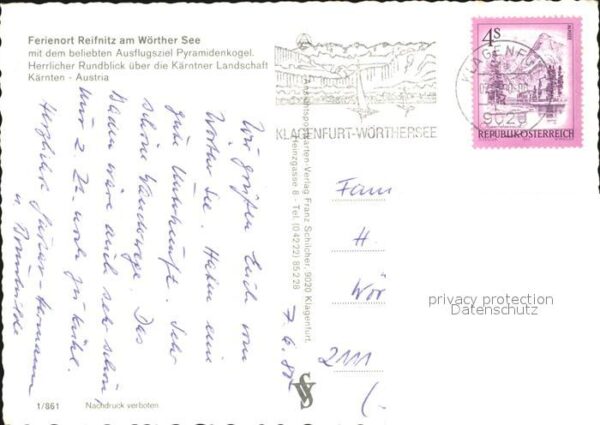 Ferienort Reifnitz am Wörther See
mit dem beliebten Ausflugsziel Pyramidenkogel.
Herrlicher Rundblick über die Kärntner Landschaft
Kärnten - Austria
KLAGENFURT-WÖRTHERSEE
KLAGENFURT
9020
4S
REPUBLIK ÖSTERREICH
Wir grüßen Euch vom
Wörther See. Haben eine
gute Unterkunft. Sehr
schöne Wanderwege. Das
Baden wäre auch sehr schön,
nur z. Zt. noch zu kühl.
Herzliche Grüße
u.
7.6.80
Ansichtspostkarten-Verlag Franz Schilcher, 9020 Klagenfurt,
Heinzgasse 8 - Tel. (04222) 85228
Fam
H.
Wör
2111
privacy protection
Datenschutz
1/861
Nachdruck verboten